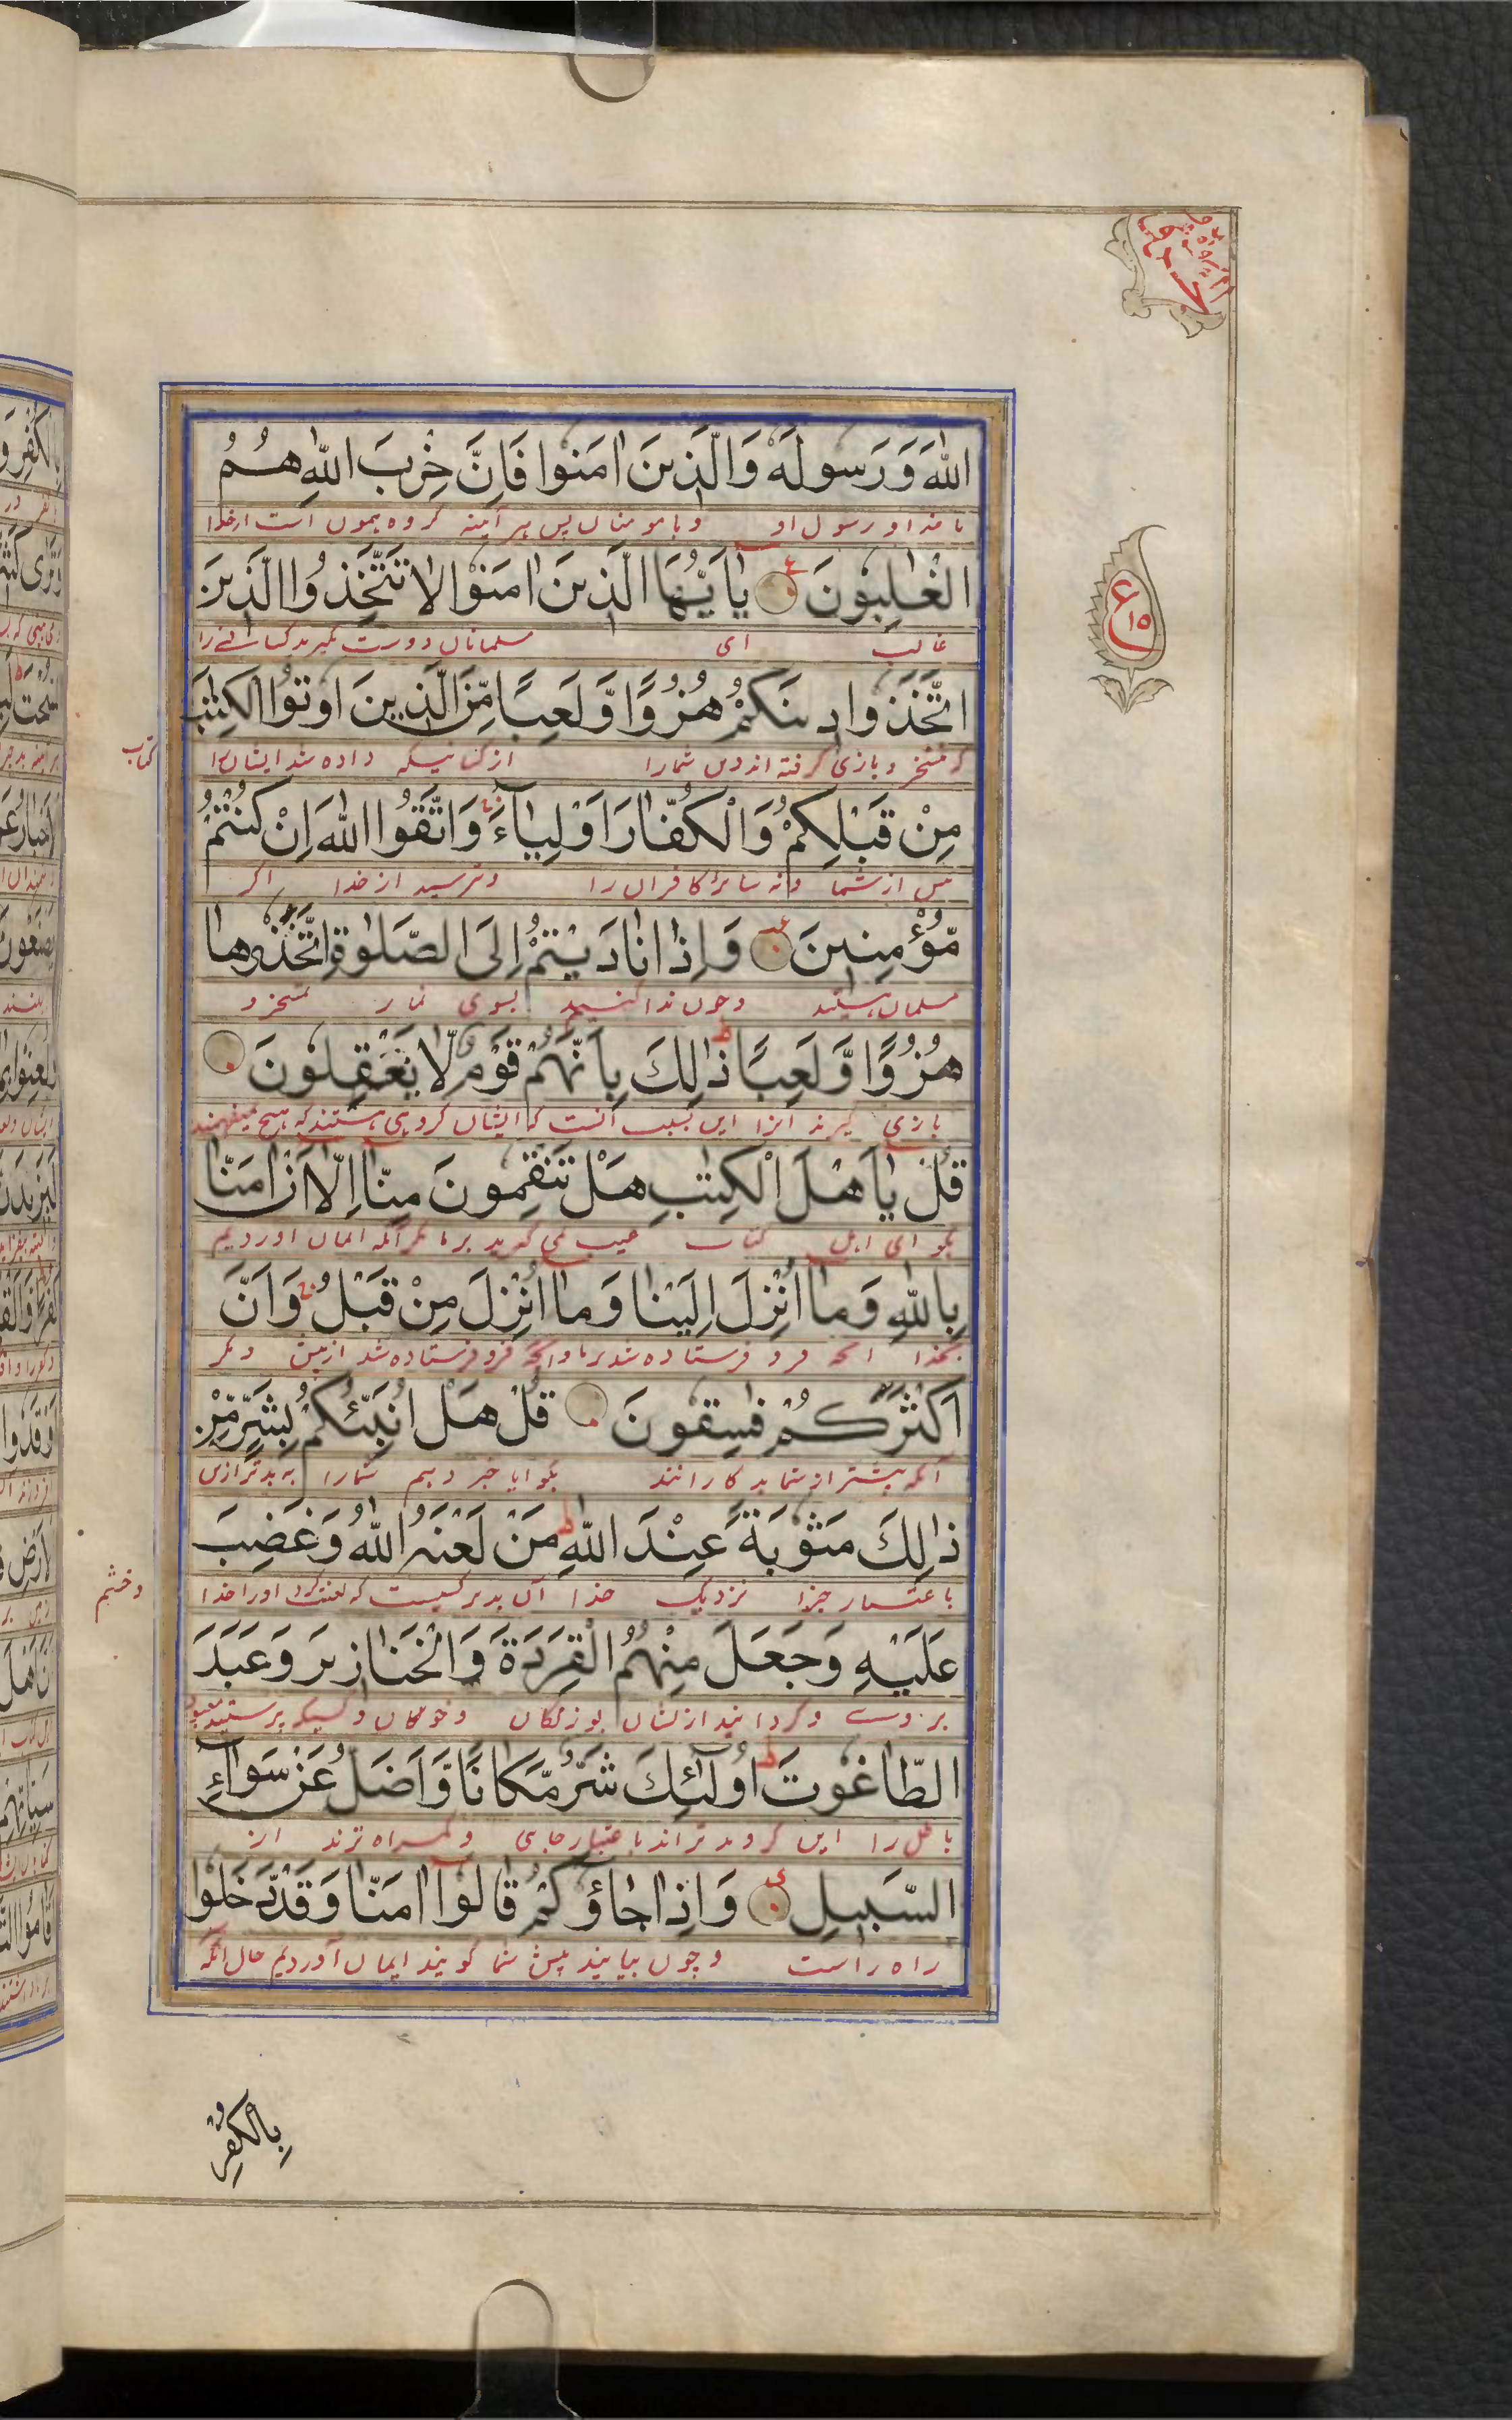 اللهَ وَرَسولَهٗ وَالَّذينَ اٰمَنوا فَاِنَّ حِزْبَ اللهِ هُمُ
با خدا و رسول او و با مومنان پس هر آینه گروه همون است از خدا
الْغٰلِبُونَ يٰاَيُّهَا الَّذينَ اٰمَنُوا لا تَتَّخِذُوا الَّذينَ
غالب ای مسلمانان دوست مگیرید کسانے را
اتَّخَذُوا دينَكُمْ هُزُوًا وَّلَعِبًا مِّنَ الَّذينَ اُوتُوا الْكِتٰبَ
که تمسخر و بازی گرفته اند دین شمارا از کسانیکه داده شد ایشان را
کتاب
مِنْ قَبْلِكُمْ وَالْكُفّارَ اَوْلِيآءَ وَاتَّقُوا اللهَ اِنْ كُنْتُمْ
پیش از شما و نه سائر کافران را و ترسید از خدا اگر
مُّؤْمِنينَ وَاِذا نادَيْتُمْ اِلَى الصَّلٰوةِ اتَّخَذُوها
مسلمان هستید و چون ندا کنید بسوی نماز تمسخر و
هُزُوًا وَّلَعِبًا ذٰلِكَ بِاَنَّهُمْ قَوْمٌ لّا يَعْقِلُونَ
بازی گیرند آنرا این بسبب آنست که ایشان گروهی هستند که هیچ نمیفهمند
قُلْ يٰاَهْلَ الْكِتٰبِ هَلْ تَنْقِمُونَ مِنّا اِلّا اَنْ اٰمَنّا
بگو ای اهل کتاب عیب نمی گیرید بر ما مگر آنکه ایمان آوردیم
بِاللهِ وَما اُنْزِلَ اِلَيْنا وَما اُنْزِلَ مِنْ قَبْلُ وَاَنَّ
بخدا آنچه فرو فرستاده شد بر ما و آنچه فرو فرستاده شد از پیش و مگر
اَكْثَرَكُمْ فٰسِقُونَ قُلْ هَلْ اُنَبِّئُكُمْ بِشَرٍّ مِّنْ
آنکه بیشتر از شما بدکارانند بگو ایا خبر دهم شمارا به بدتر ازین
ذٰلِكَ مَثُوبَةً عِنْدَ اللهِ مَنْ لَعَنَهُ اللهُ وَغَضِبَ
باعتبار جزا نزدیک خدا آن بدتر کسیست که لعنت کرد او را خدا
و خشم
عَلَيْهِ وَجَعَلَ مِنْهُمُ الْقِرَدَةَ وَالْخَنازيرَ وَعَبَدَ
بر وے و گردانید از ایشان بوزنگان و خوکان و کسیکه پرستید
الطّاغُوتَ اُولٰٓئِكَ شَرٌّ مَّكانًا وَّاَضَلُّ عَنْ سَوآءِ
باطل را این گروه بدتر اند باعتبار جای و گمراه ترند از
السَّبيلِ وَاِذا جاؤُكُمْ قالُوا اٰمَنّا وَقَدْ دَّخَلُوا
راه راست و چون بیایند پیش شما گویند ایمان آوردیم حال آنکه
بِالْكُفْرِ
ع
١٥